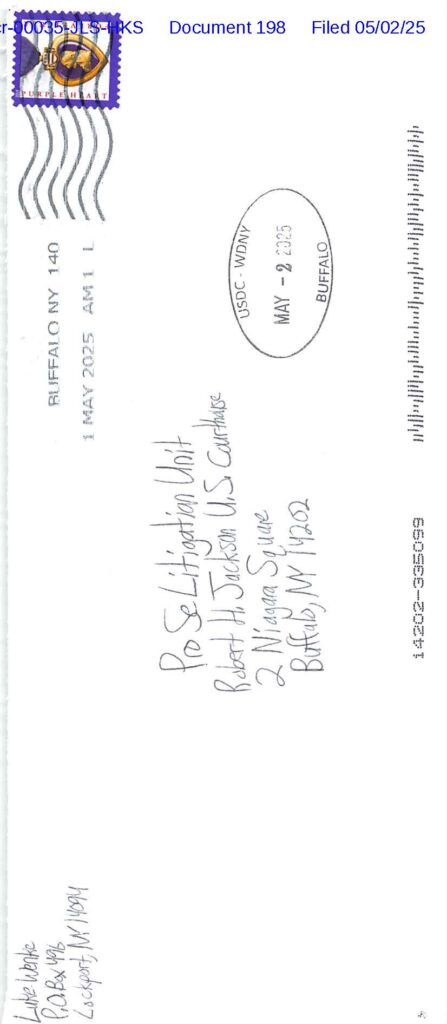 cr-00035-JLS-HKS Document 198 Filed 05/02/25
PURPLE HEART
BUFFALO NY 140
1 MAY 2025 AM 1 L
USDC - WDNY
MAY - 2 2025
BUFFALO
Luke Wenke
P.O. Box 496
Lockport, NY 14094
Pro Se Litigation Unit
Robert H. Jackson U.S. Courthouse
2 Niagara Square
Buffalo, NY 14202
14202-335099